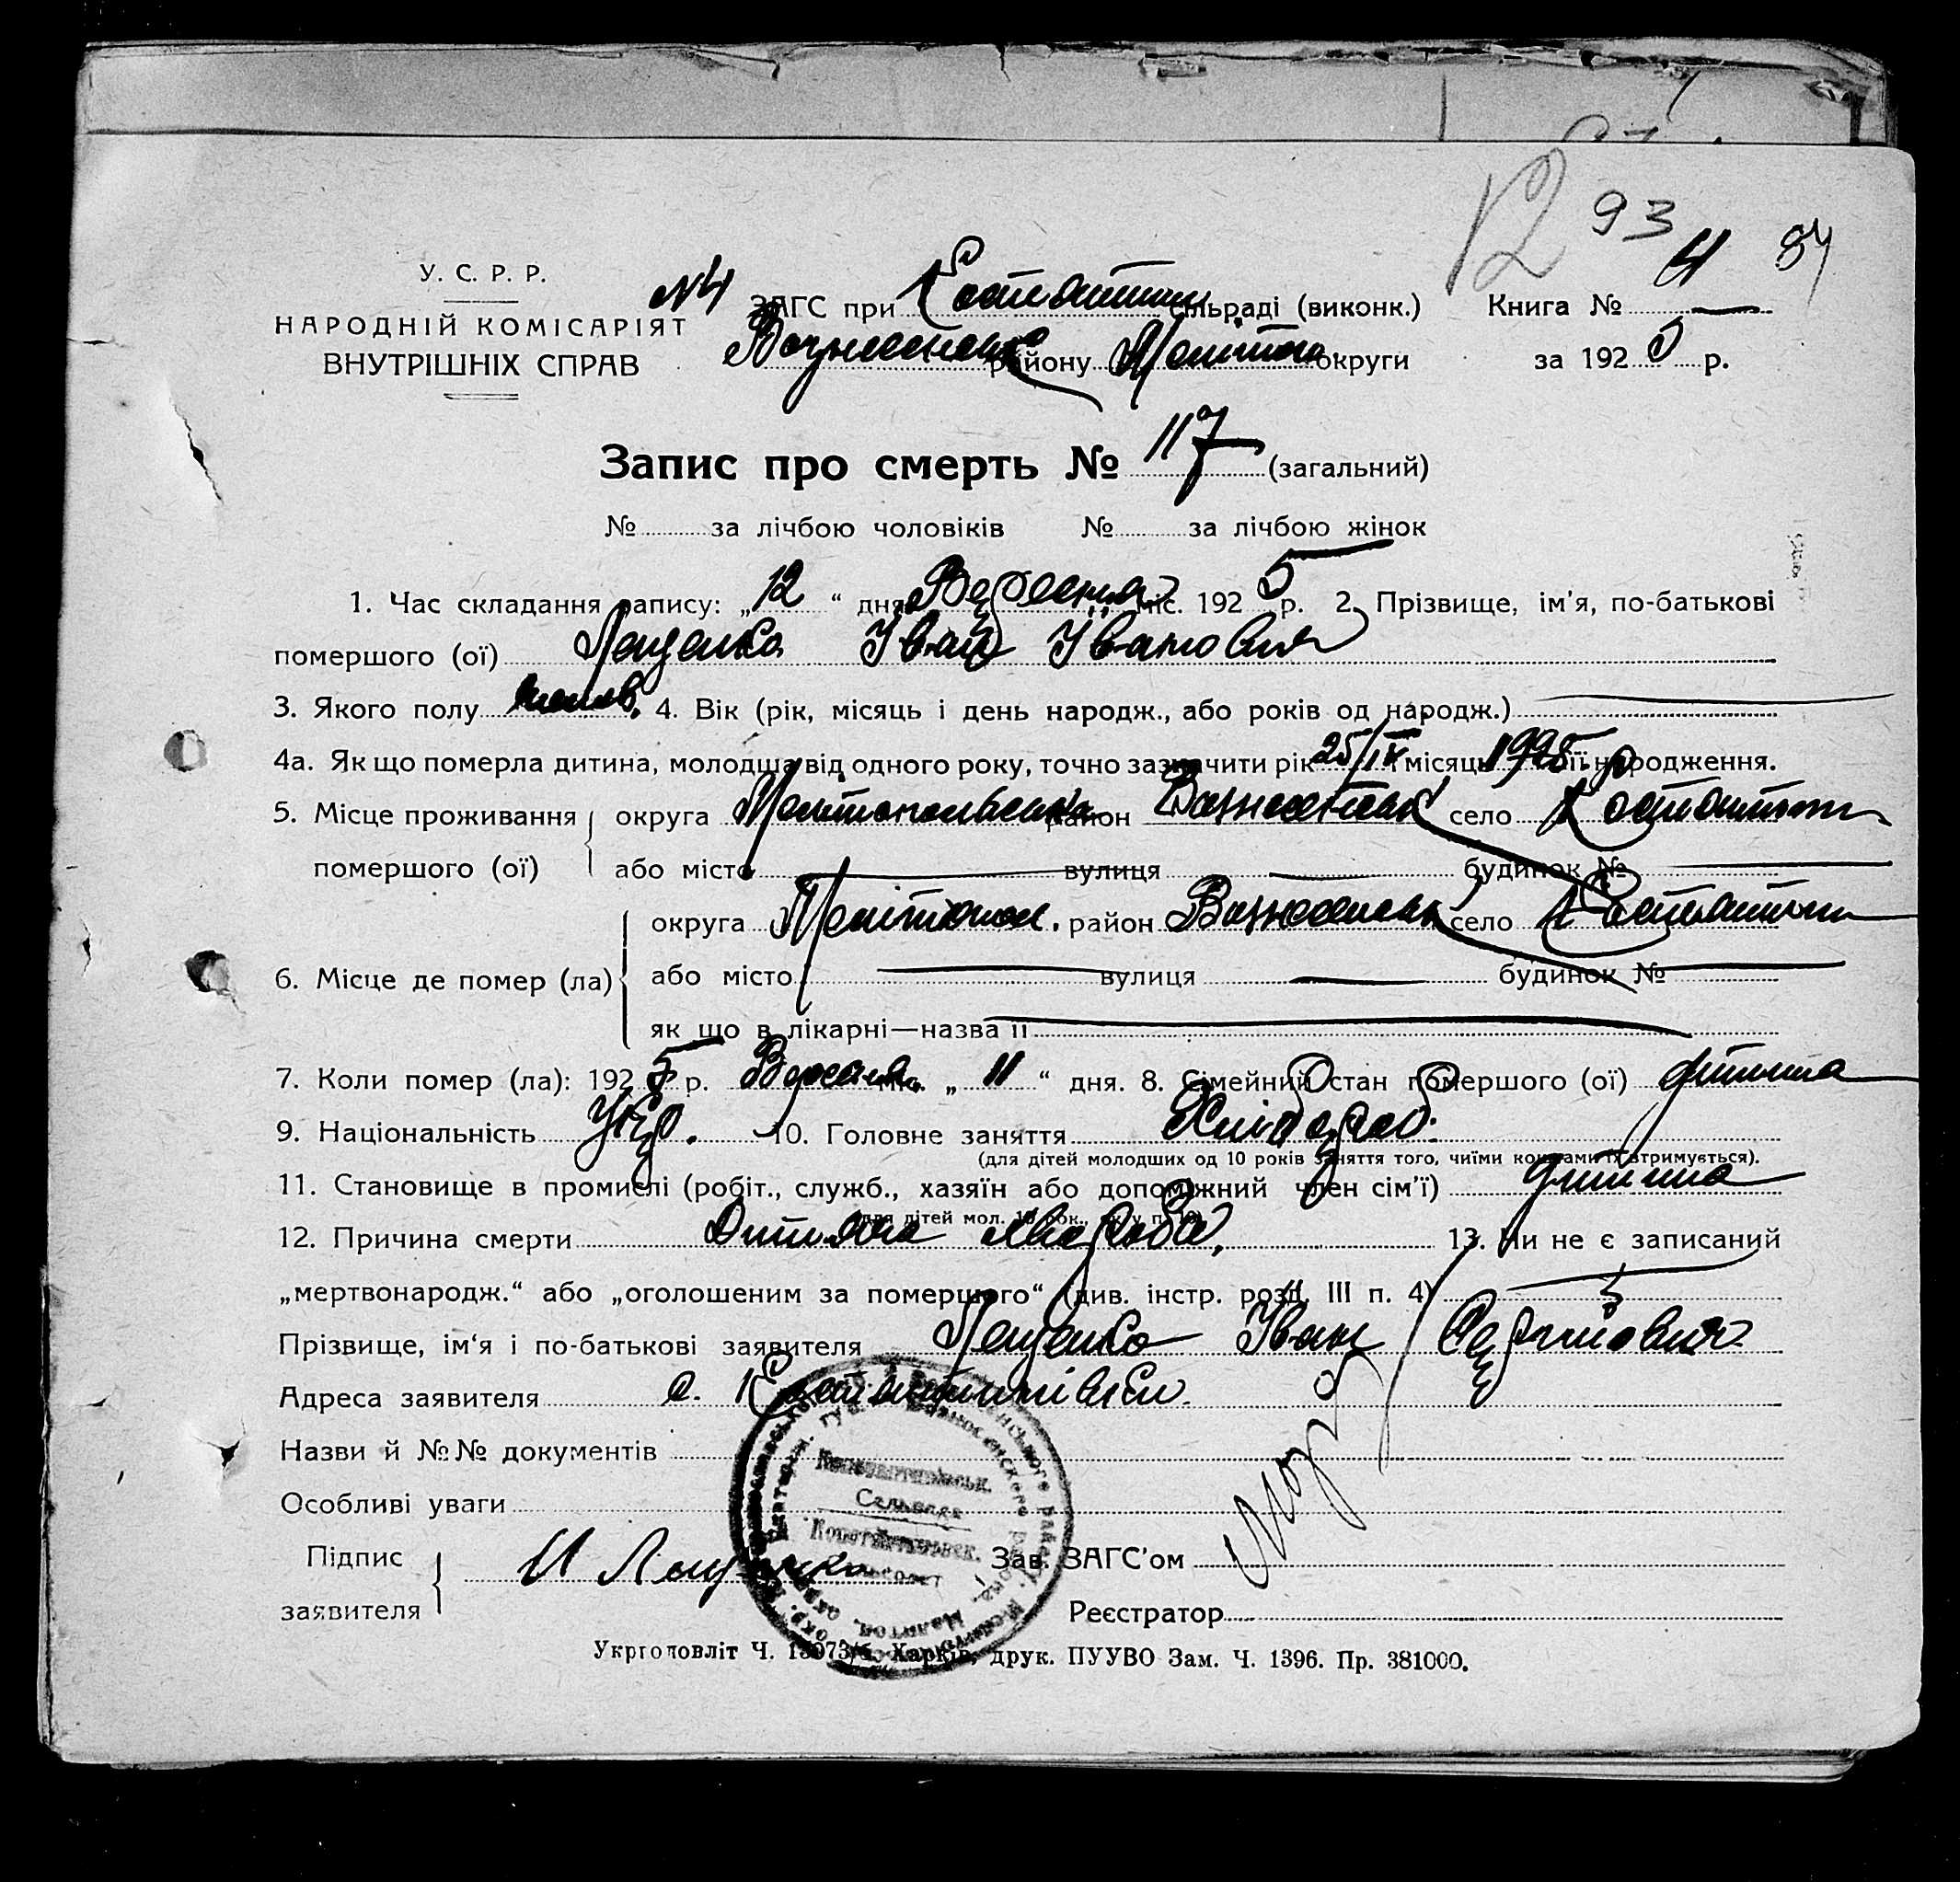 12 93 84
У. С. Р. Р.
№4 ЗАГС при сільраді (виконк.) Книга № 4
НАРОДНІЙ КОМІСАРІЯТ
ВНУТРІШНІХ СПРАВ
району округи за 1925 р.
Запис про смерть № 117 (загальний)
№ за лічбою чоловіків № за лічбою жінок
1. Час складання запису: „12“ дня Вересня міс. 1925 р. 2. Прізвище, ім'я, по-батькові
помершого (ої) Лещенко Іван Іванович
3. Якого полу 4. Вік (рік, місяць і день народж., або років од народж.)
4а. Як що померла дитина, молодша від одного року, точно зазначити рік 25/IV і місяць 1925 р її народження.
5. Місце проживання округа район село
помершого (ої) або місто вулиця будинок №
округа Мелітопол. район село
6. Місце де помер (ла) або місто вулиця будинок №
як що в лікарні—назва її
7. Коли помер (ла): 1925 р. Вересня міс. „11“ дня. 8. Сімейний стан помершого (ої) дитина
9. Національність Укр. 10. Головне заняття Хлібороб.
(для дітей молодших од 10 років заняття того, чиїми коштами їх втримується).
11. Становище в промислі (робіт., служб., хазяїн або допоміжний член сім'ї) дитина
(для дітей мол. 10 рок., як у п. 10)
12. Причина смерти Дитяча хвороба. 13. Чи не є записаний
„мертвонародж.“ або „оголошеним за помершого“ (див. інстр. розд. III п. 4)
Прізвище, ім'я і по-батькові заявителя Лещенко Іван Сергійович
Адреса заявителя с. Костянтинівки.
Назви й №№ документів
Особливі уваги
Підпис
заявителя И Лещенко Зав. ЗАГС'ом
Реєстратор
Укрголовліт Ч. Харків, друк. ПУУВО Зам. Ч. 1396. Пр. 381000.